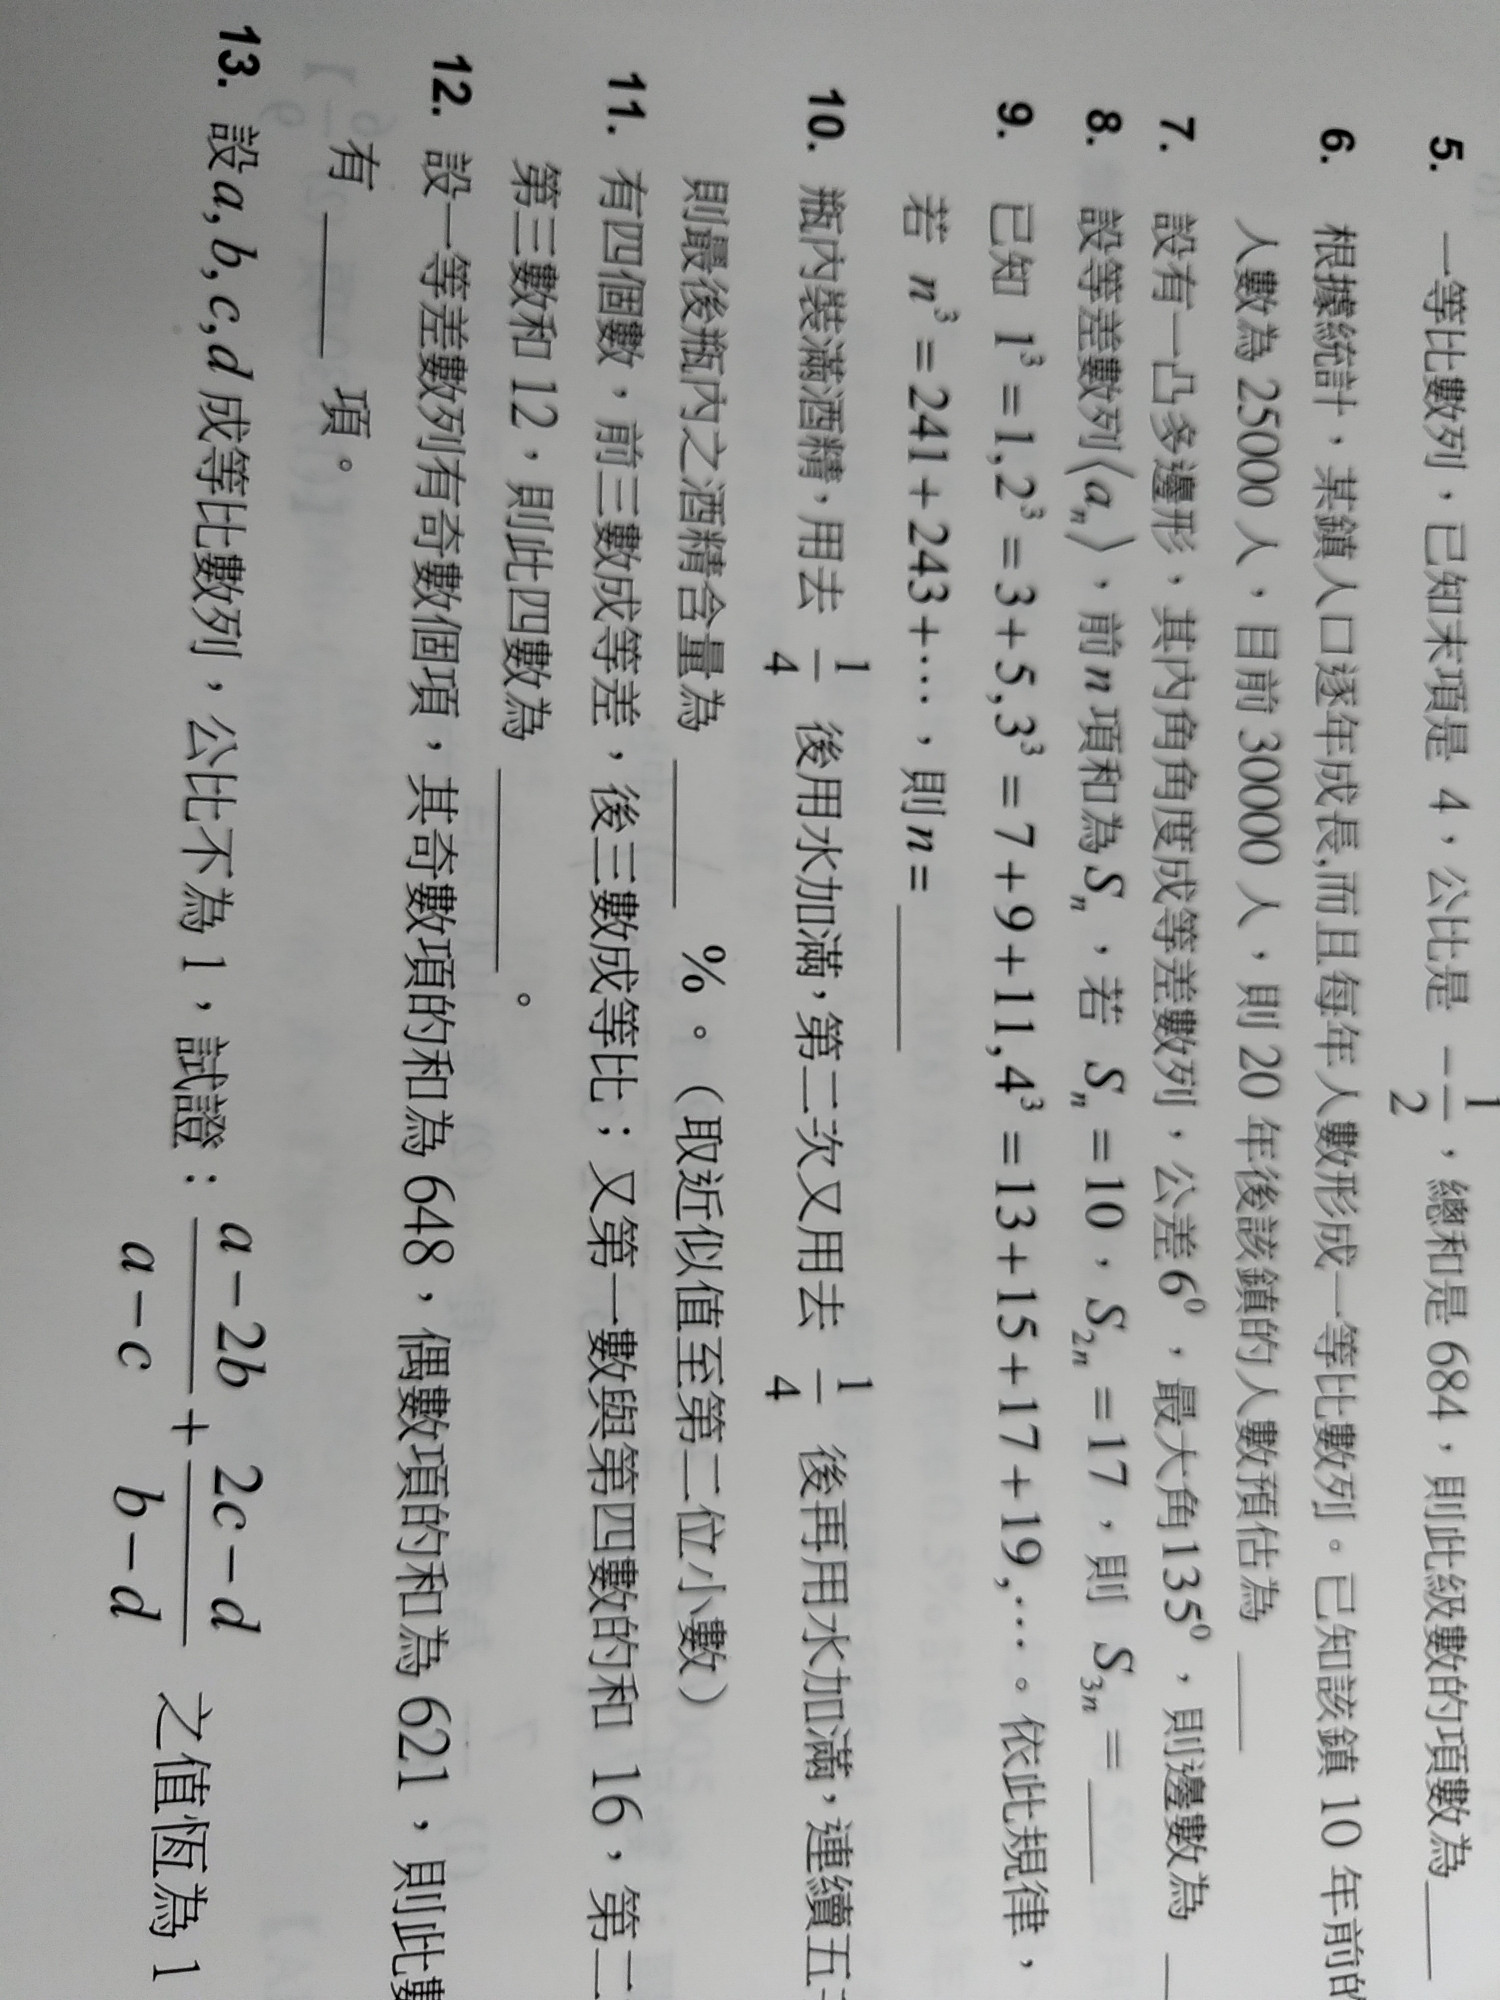 5. 一等比數列，已知末項是 4，公比是 -1/2，總和是 684，則此級數的項數為____
6. 根據統計，某鎮人口逐年成長,而且每年人數形成一等比數列。已知該鎮 10 年前的
人數為 25000 人，目前 30000 人，則 20 年後該鎮的人數預估為 ____
7. 設有一凸多邊形，其內角角度成等差數列，公差6⁰，最大角135⁰，則邊數為 __
8. 設等差數列⟨aₙ⟩，前n項和為Sₙ，若 Sₙ=10，S₂ₙ=17，則 S₃ₙ=____
9. 已知 1³=1,2³=3+5,3³=7+9+11,4³=13+15+17+19,…。依此規律，
若 n³=241+243+…，則n=____
10. 瓶內裝滿酒精，用去 1/4 後用水加滿，第二次又用去 1/4 後再用水加滿，連續五
則最後瓶內之酒精含量為____ %。（取近似值至第二位小數）
11. 有四個數，前三數成等差，後三數成等比；又第一數與第四數的和 16，第二
第三數和 12，則此四數為 ____ 。
12. 設一等差數列有奇數個項，其奇數項的和為 648，偶數項的和為 621，則此數
有 ____ 項。
13. 設a,b,c,d成等比數列，公比不為 1，試證：(a-2b)/(a-c)+(2c-d)/(b-d) 之值恆為 1